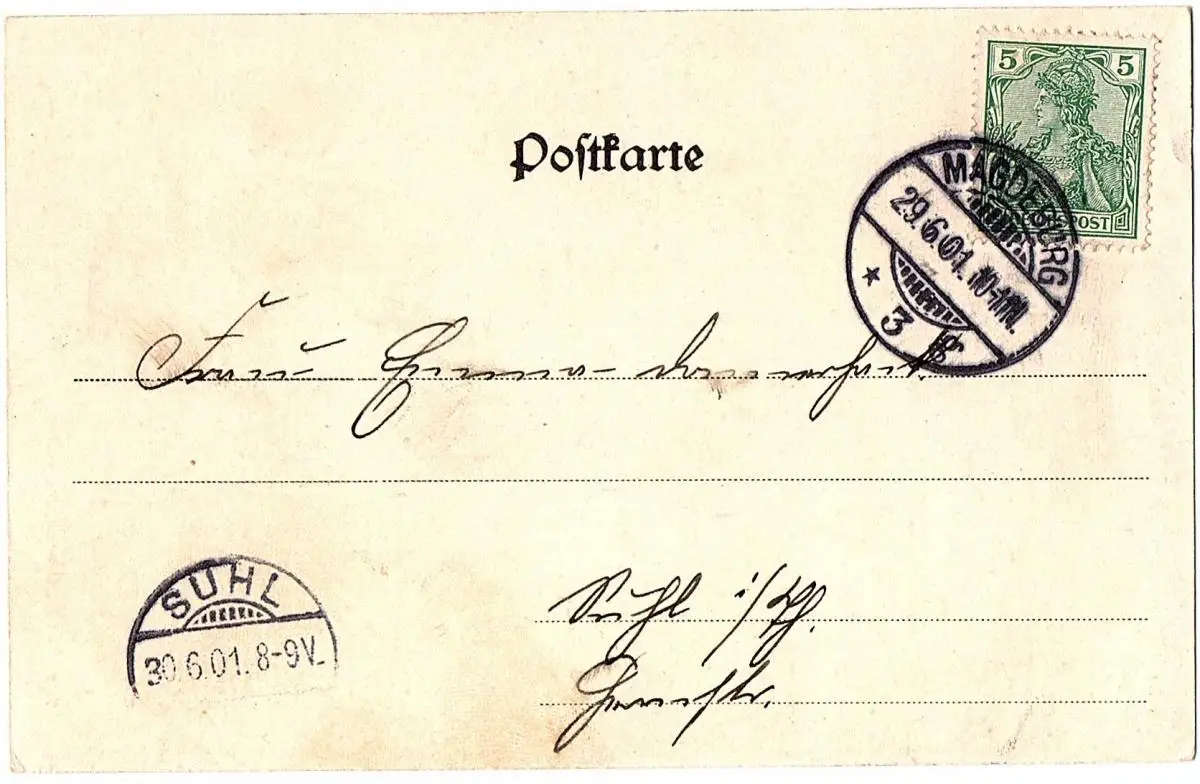 5 5
POST
Poſtkarte
MAGDEBURG
29.6.01. 10-11N.
* 3
Frau Emma
SUHL
30.6.01. 8-9V.
Suhl i/Th.